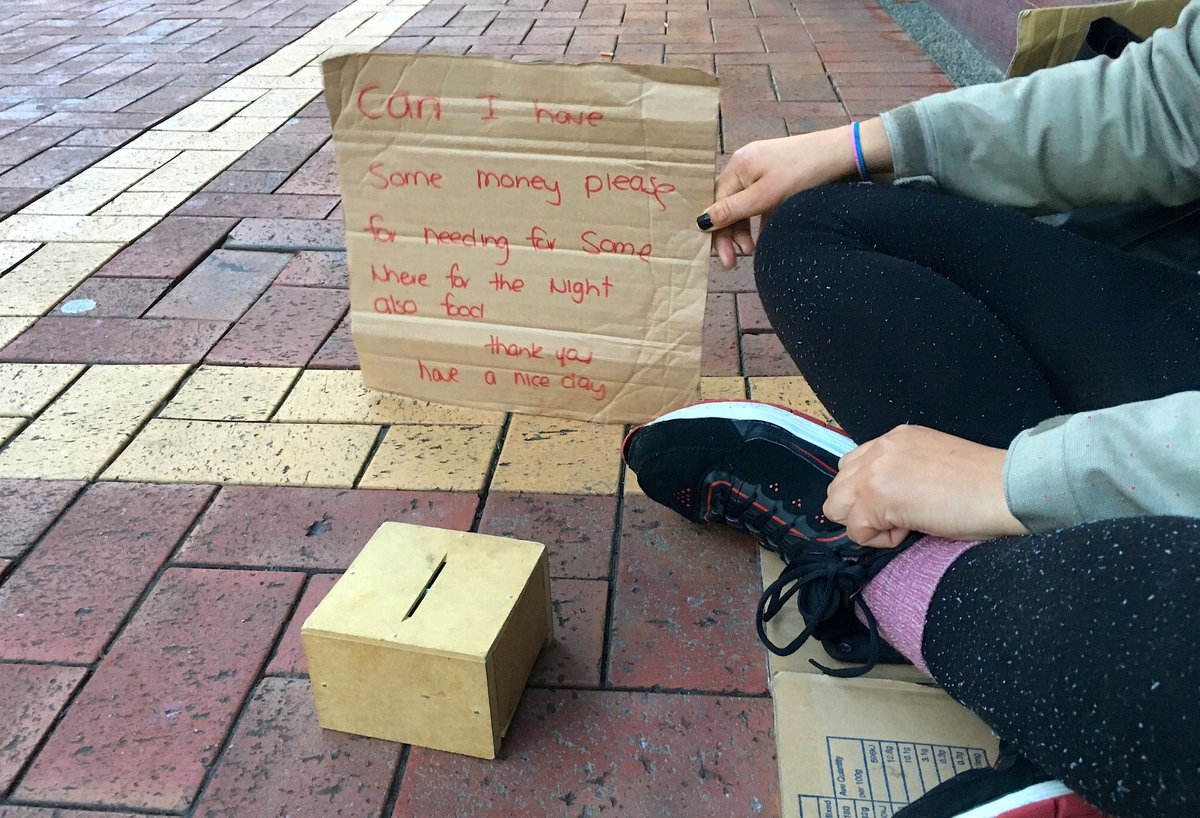 Can I have
Some money please
for needing for Some
Where for the Night
also food
thank you
have a nice day
Ave Quantity
per 100g